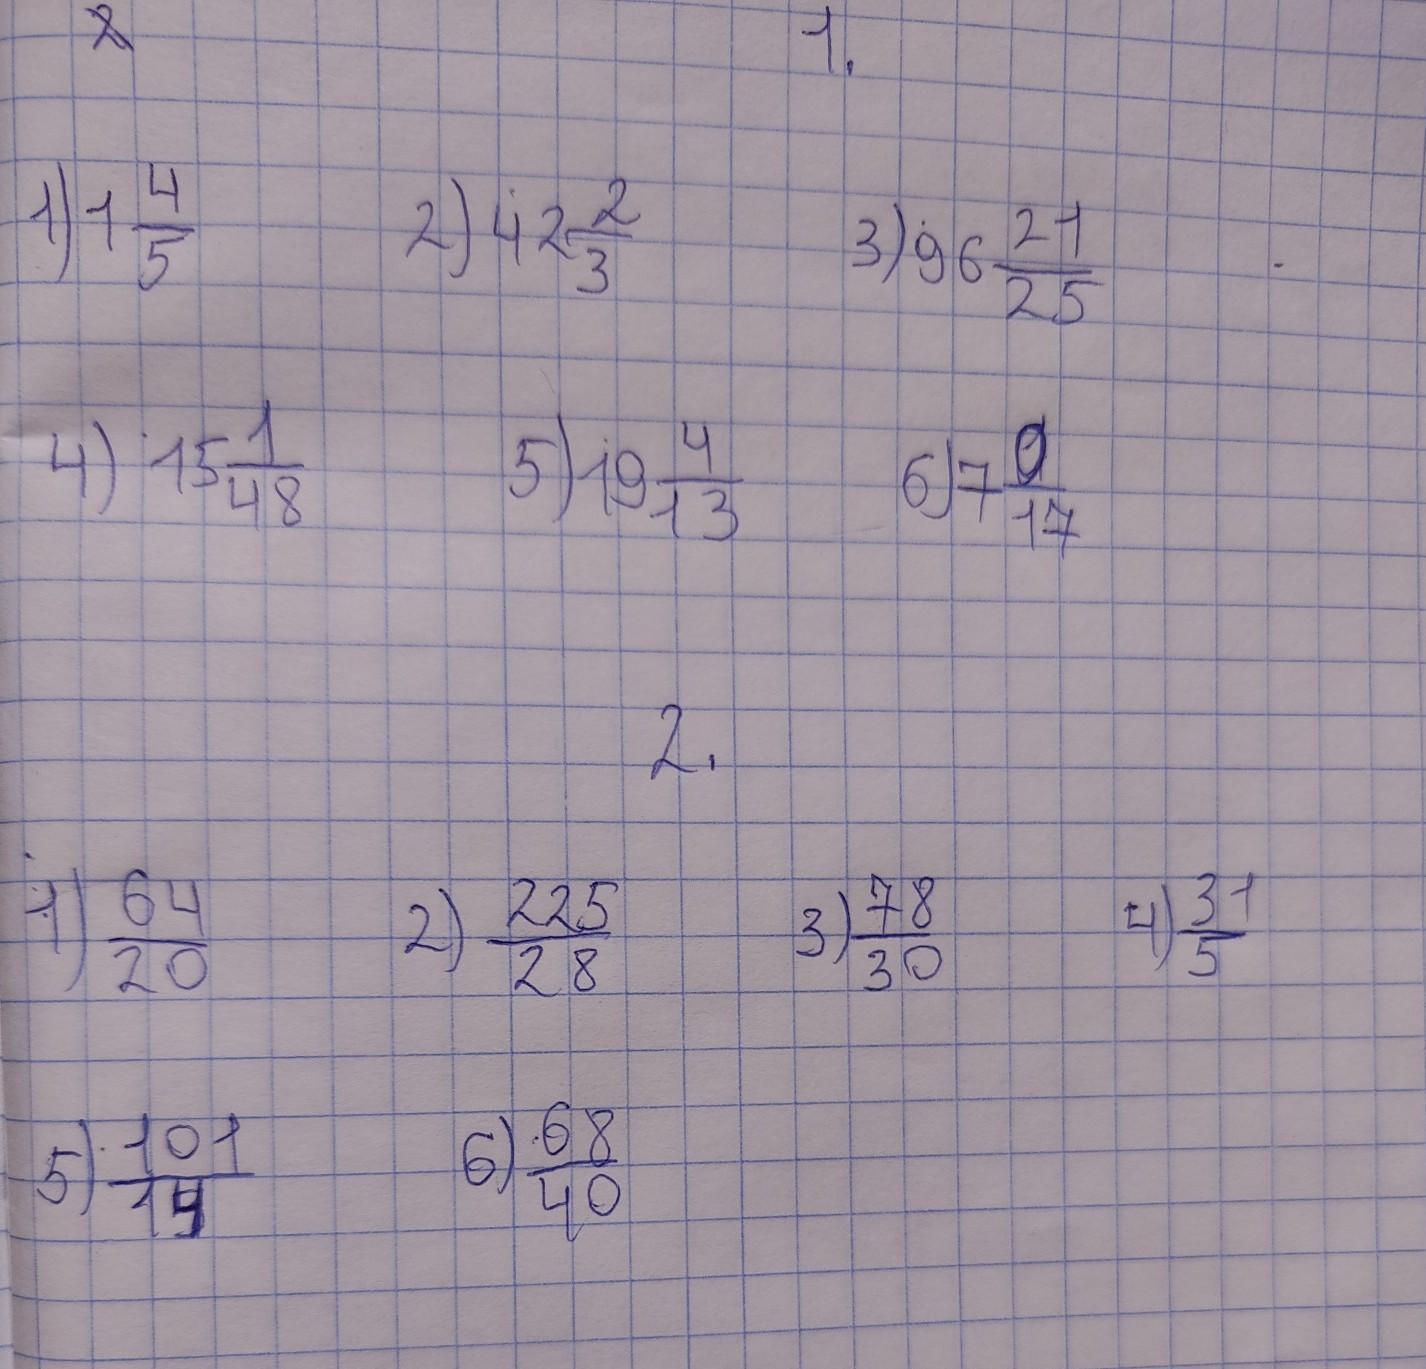 1.
1) 1 4/5 2) 42 2/3 3) 96 21/25
4) 15 1/48 5) 19 4/13 6) 7 0/17
2.
1) 64/20 2) 225/28 3) 78/30 4) 31/5
5) 101/14 6) 68/40